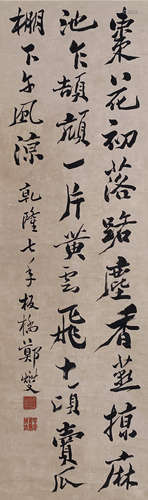 棗花初落路塵香燕掠麻
池乍頡頏一片黃雲飛十頃賣瓜
棚下午風涼
乾隆七年板橋鄭燮